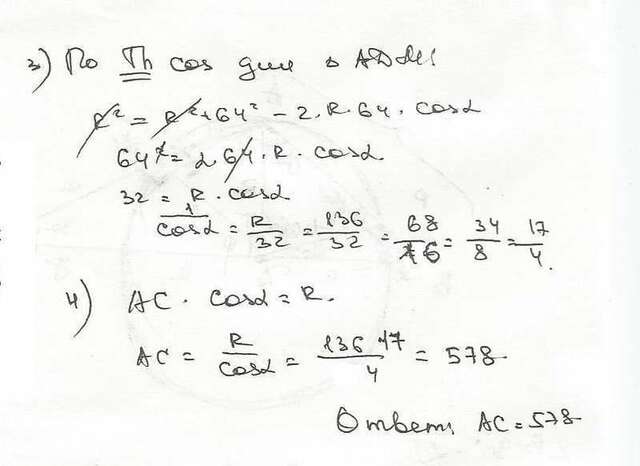 3) По Th cos для △ ADM:
R² = R² + 64² - 2.R.64.cosα
64² = 2 64.R.cosα
32 = R.cosα
1/cosα = R/32 = 136/32 = 68/16 = 34/8 = 17/4.
4) AC.cosα = R.
AC = R/cosα = 136.17/4 = 578
Ответ: AC = 578